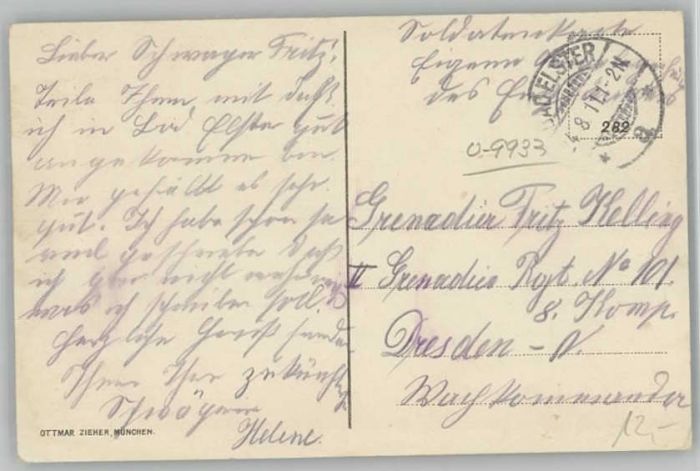 Lieber Schwager Fritz!
Teile Ihnen mit daß
ich in Bad Elster gut
angekommen bin.
Mir gefällt es sehr
gut. Ich habe schon so
viel geschrieben daß
ich gar nicht mehr weiß
was ich schreiben soll.
Herzliche Grüße sendet
Ihnen Ihre zukünftige
Schwägerin
Helene.
OTTMAR ZIEHER, MÜNCHEN.
Soldatenkarte
Eigene
des
BAD ELSTER
8.11.1-2N
a
282
0-9933
Grenadier Fritz Kelling
II Grenadier Rgt. No 101.
8. Komp.
Dresden-N.
Wachkommando
12,-